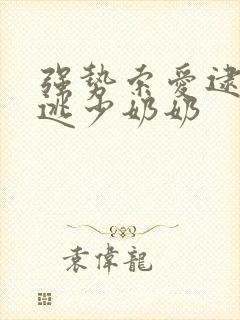 强势索爱逮
逃少奶奶
袁偉龍